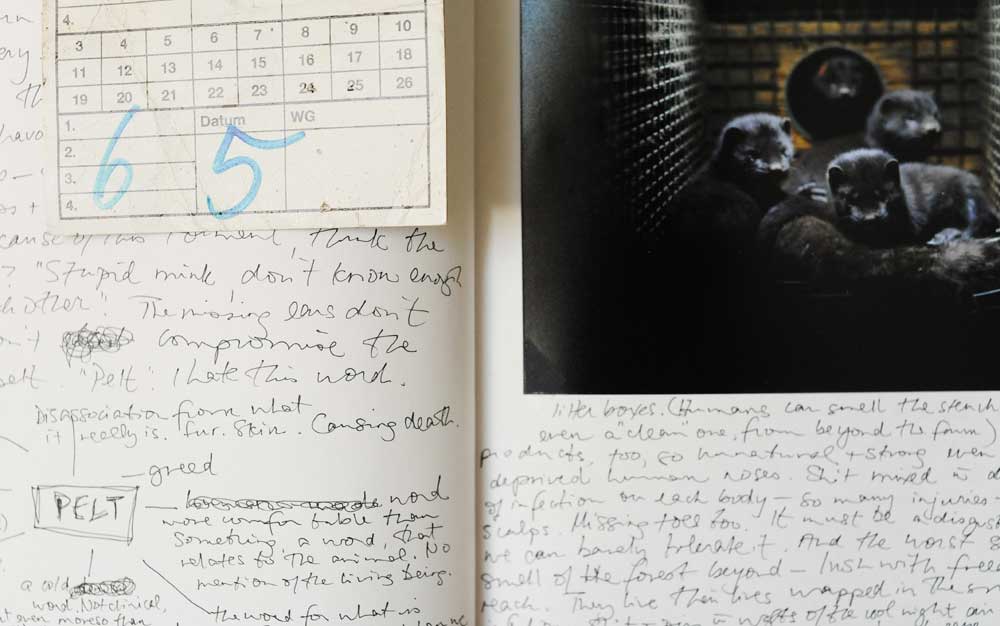 4.
3 4 5 6 7 8 9 10
11 12 13 14 15 16 17 18
19 20 21 22 23 24 25 26
1. Datum WG
2.
3.
4.
6 5
cause of this torment, think the
? "Stupid mink don't know enough
other". The missing ears don't
compromise the
pelt. "Pelt". I hate this word.
Disassociation from what
it really is. fur. Skin. Causing death.
greed
PELT
word
more comfortable than
something a word, that
relates to the animal. No
mention of the living being.
a cold
word. Not clinical,
even moreso than
the word for what is
litter boxes. (Humans can smell the stench
even a "clean" one, from beyond the farm)
products, too, so unnatural + strong even
deprived human noses. Shit mixed
of infection on each body – so many injuries.
scalps. Missing toes too. It must be a
we can barely tolerate it. And the worst
smell of the forest beyond – lush with
reach. They live their lives wrapped in the
wafts of the cool night air